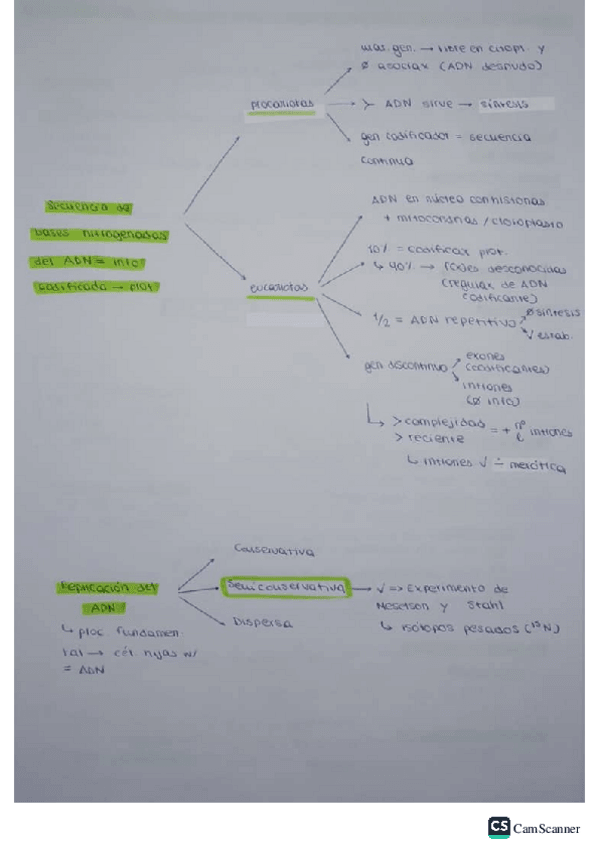 mas. gen. → libre en citopl. y
∅ asociax (ADN desnudo)
procariotas
> ADN sirve → síntesis
gen codificador = secuencia
continua
Secuencia de
bases nitrogenadas
del ADN = info
codificada → prot
eucariotas
ADN en núcleo con histonas
+ mitocondrias / cloroplasto
10% = codificax prot.
↳ 40% → roles desconocidas
(regulax de ADN
codificante)
1/2 = ADN repetitivo
∅ síntesis
√ estab.
gen discontinuo
exones
(codificantes)
intrones
(∅ info)
> complejidad
> reciente
= + nº intrones
↳ intrones √ ÷ meiótica
Replicación del
ADN
↳ proc. fundamen
tal → cél. hijas w/
= ADN
Conservativa
Semiconservativa
Dispersa
√ => Experimento de
Meselson y Stahl
↳ isótopos pesados (¹⁵N)
CS CamScanner